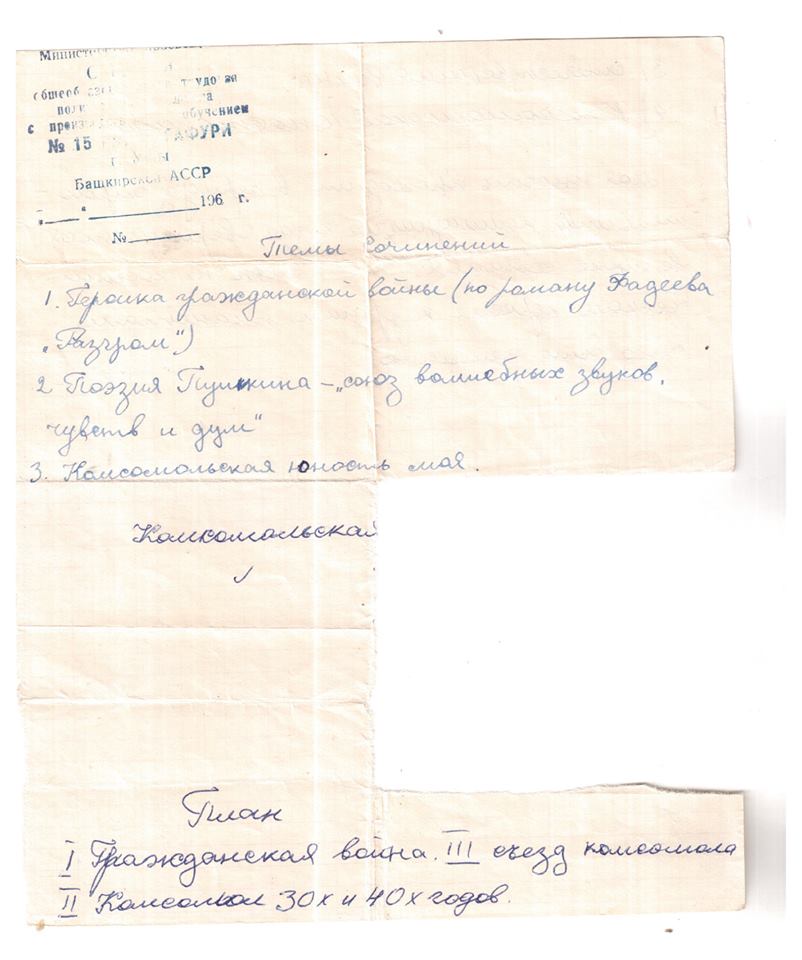 Министерство
С
общеоб
трудова
пол
с произ обучением
№ 15 ГАФУРИ
г. Уфы
Башкирской АССР
„ “ 196 г.
№
Темы Сочинении
1. Героика гражданской войны (по роману Фадеева
„Разгром“)
2 Поэзия Пушкина – „союз волшебных звуков,
чувств и дум“
3. Комсомольская юность моя.
Комкомольская
План
I Гражданская война. III съезд комсомола
II Комсомол 30х и 40х годов.